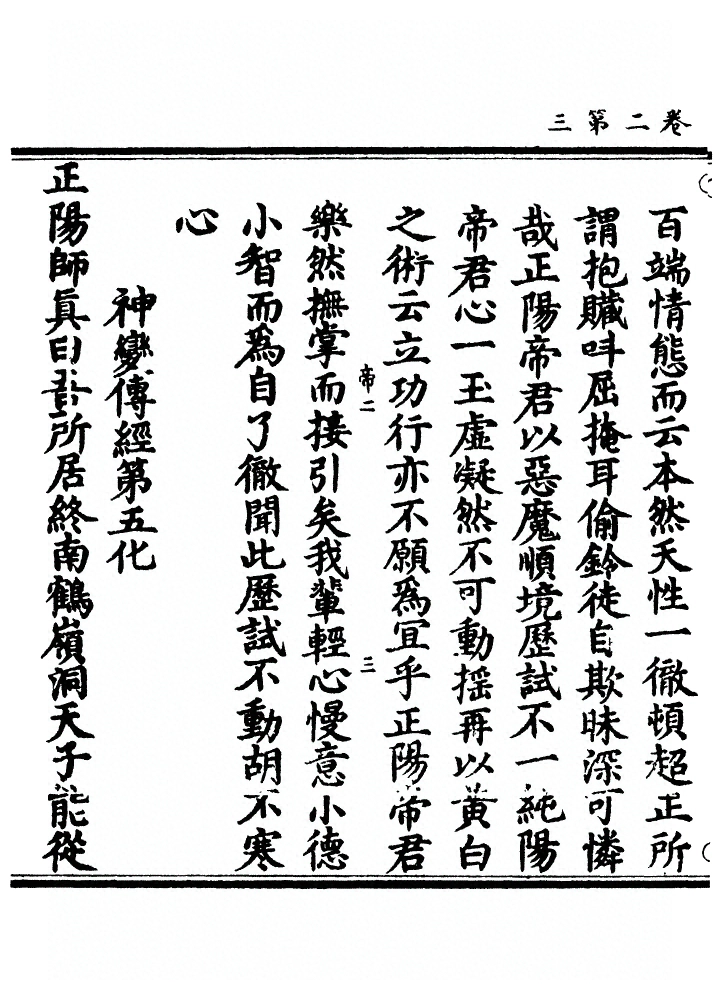 卷二第三
百端情態而云本然天性一徹頓超正所
謂抱贓呌屈掩耳偷鈴徒自欺昧深可憐
哉正陽帝君以惡魔順境歷試不一純陽
帝君心一玉虛凝然不可動揺再以黃白
之術云立功行亦不願爲冝乎正陽帝君
帝二
三
樂然撫掌而接引矣我輩輕心慢意小德
小智而爲自了徹聞此歷試不動胡不寒
心
神變傳經第五化
正陽師眞曰吾所居終南鶴嶺洞天子能從